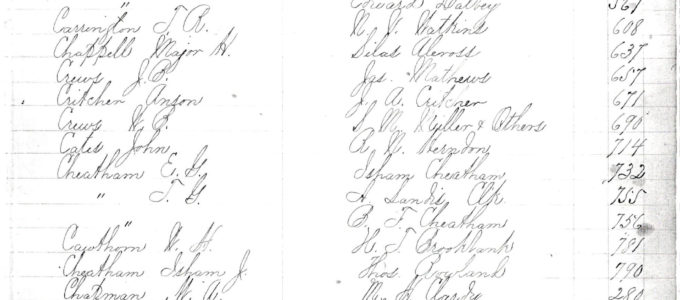 " Edward Dalby 567
Carrington T. R. N. V. Watkins 608
Chappell Major H. Silas 637
Crews J. B. Jas. Mathews 657
Critcher Anson J. A. Critcher 671
Crews W. B. S. M. & Others 690
Cates John R. D. Herndon 714
Cheatham E. G. Isham Cheatham 732
" T. G. A. Landis Clk. 755
" B. F. Cheatham 756
Cawthorn W. H. H. T. Brookbank 781
Cheatham Isham J. Thos. 790
Chapman M. A. M. H. 280